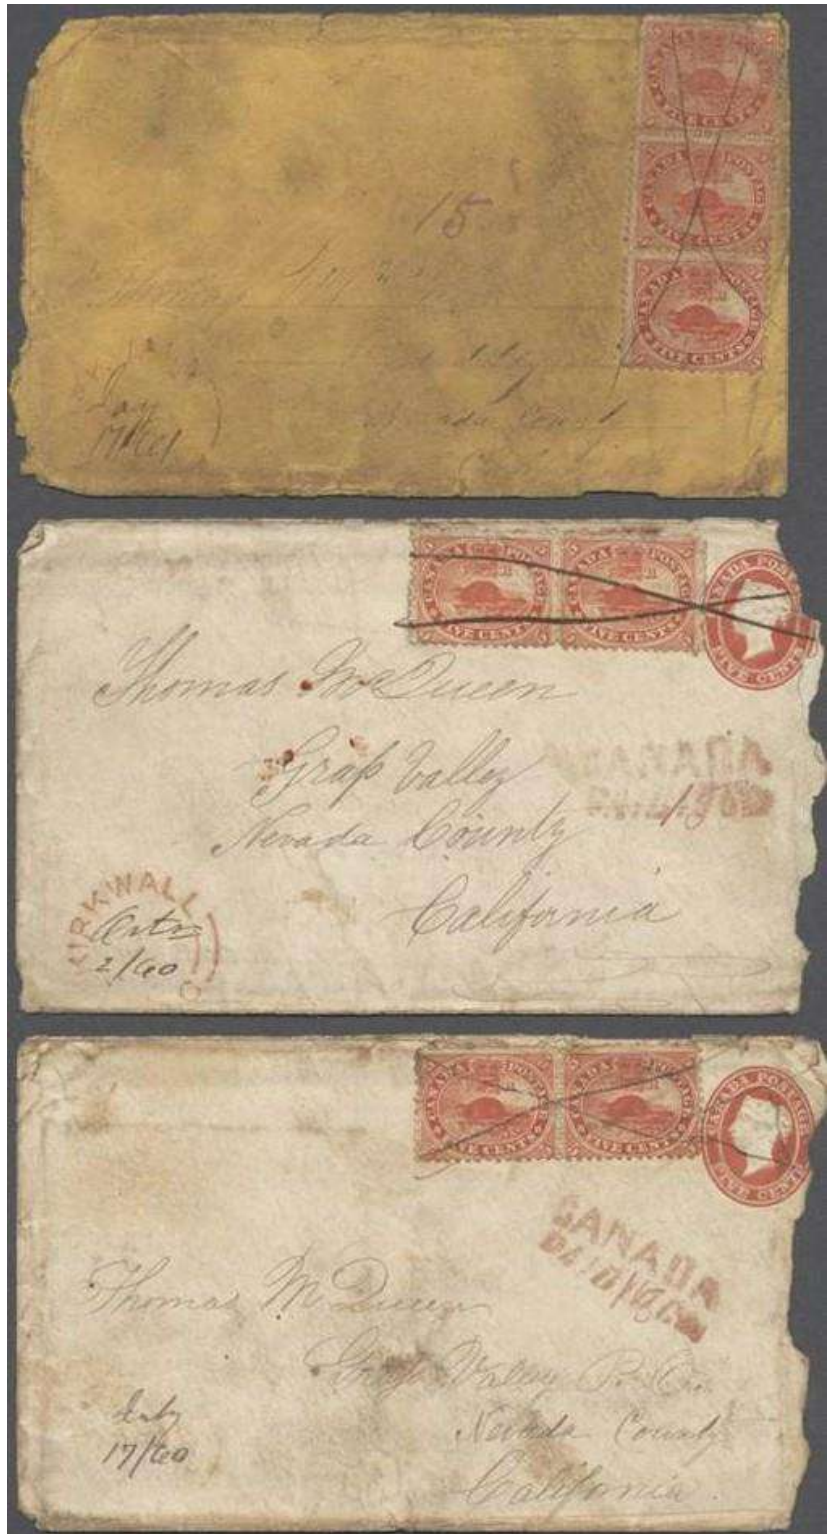 CANADA POSTAGE
FIVE CENTS
CANADA POSTAGE
FIVE CENTS
CANADA POSTAGE
FIVE CENTS
15
Nevada County
17/61
CANADA POSTAGE
FIVE CENTS
CANADA POSTAGE
FIVE CENTS
CANADA POSTAGE
FIVE CENTS
Thomas McQueen
Grass Valley
Nevada County
California
CANADA
PAID
KIRKWALL
2/60
CANADA POSTAGE
FIVE CENTS
CANADA POSTAGE
FIVE CENTS
CANADA POSTAGE
FIVE CENTS
CANADA
PAID
Thomas McQueen
Grass Valley P. O.
Nevada County
California.
July
17/60